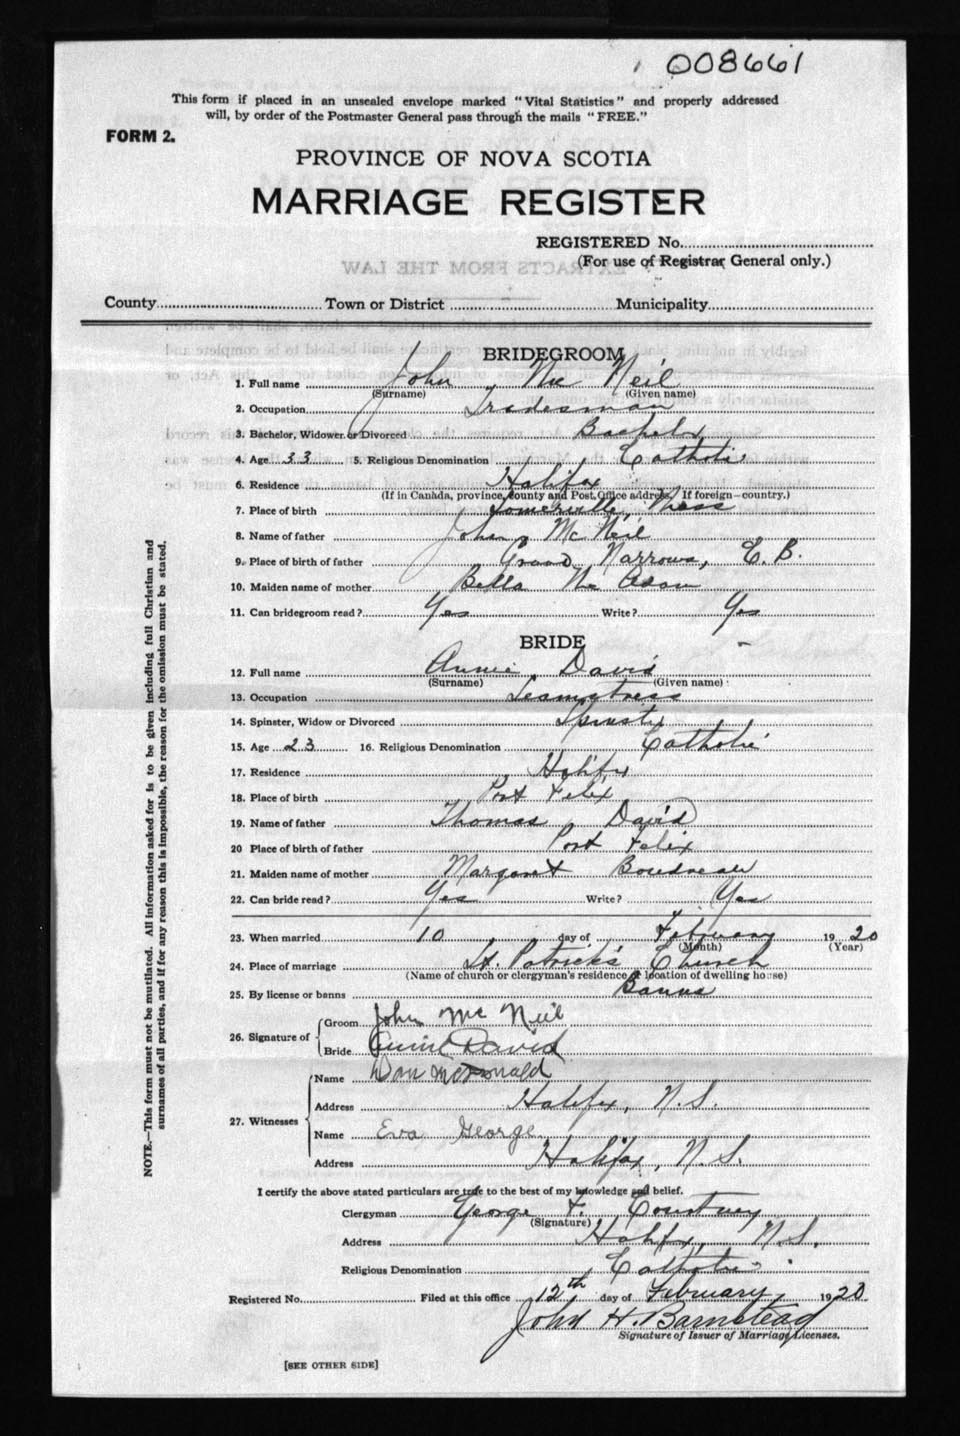 008661
This form if placed in an unsealed envelope marked "Vital Statistics" and properly addressed
will, by order of the Postmaster General pass through the mails "FREE."
FORM 2.
PROVINCE OF NOVA SCOTIA
MARRIAGE REGISTER
REGISTERED No.
(For use of Registrar General only.)
County Town or District Municipality
BRIDEGROOM
1. Full name John Mc Neil
(Surname) (Given name)
2. Occupation Tradesman
3. Bachelor, Widower or Divorced Bachelor
4. Age 33 5. Religious Denomination Catholic
6. Residence Halifax
(If in Canada, province, county and Post Office address. If foreign—country.)
7. Place of birth Somerville, Mass
8. Name of father John Mc Neil
9. Place of birth of father Grand Narrows, C. B.
10. Maiden name of mother Bella Mc
11. Can bridegroom read? Yes Write? Yes
BRIDE
12. Full name Annie David
(Surname) (Given name)
13. Occupation Seamstress
14. Spinster, Widow or Divorced Spinster
15. Age 23 16. Religious Denomination Catholic
17. Residence Halifax
18. Place of birth Port Felix
19. Name of father Thomas David
20 Place of birth of father Port Felix
21. Maiden name of mother Margaret Boudreau
22. Can bride read? Yes Write? Yes
23. When married 10 day of February 1920
(Month) (Year)
24. Place of marriage St. Patrick's Church
(Name of church or clergyman's residence or location of dwelling house)
25. By license or banns Banns
26. Signature of Groom John Mc Neil
Bride Annie David
27. Witnesses Name Dan McDonald
Address Halifax, N.S.
Name Eva George
Address Halifax, N.S.
I certify the above stated particulars are true to the best of my knowledge and belief.
Clergyman George F. Courtney
(Signature)
Address Halifax, N.S.
Religious Denomination Catholic
Registered No. Filed at this office 12th day of February 1920
John H. Barnstead
Signature of Issuer of Marriage Licenses.
[SEE OTHER SIDE]
NOTE.—This form must not be mutilated. All information asked for is to be given including full Christian and
surnames of all parties, and if for any reason this is impossible, the reason for the omission must be stated.